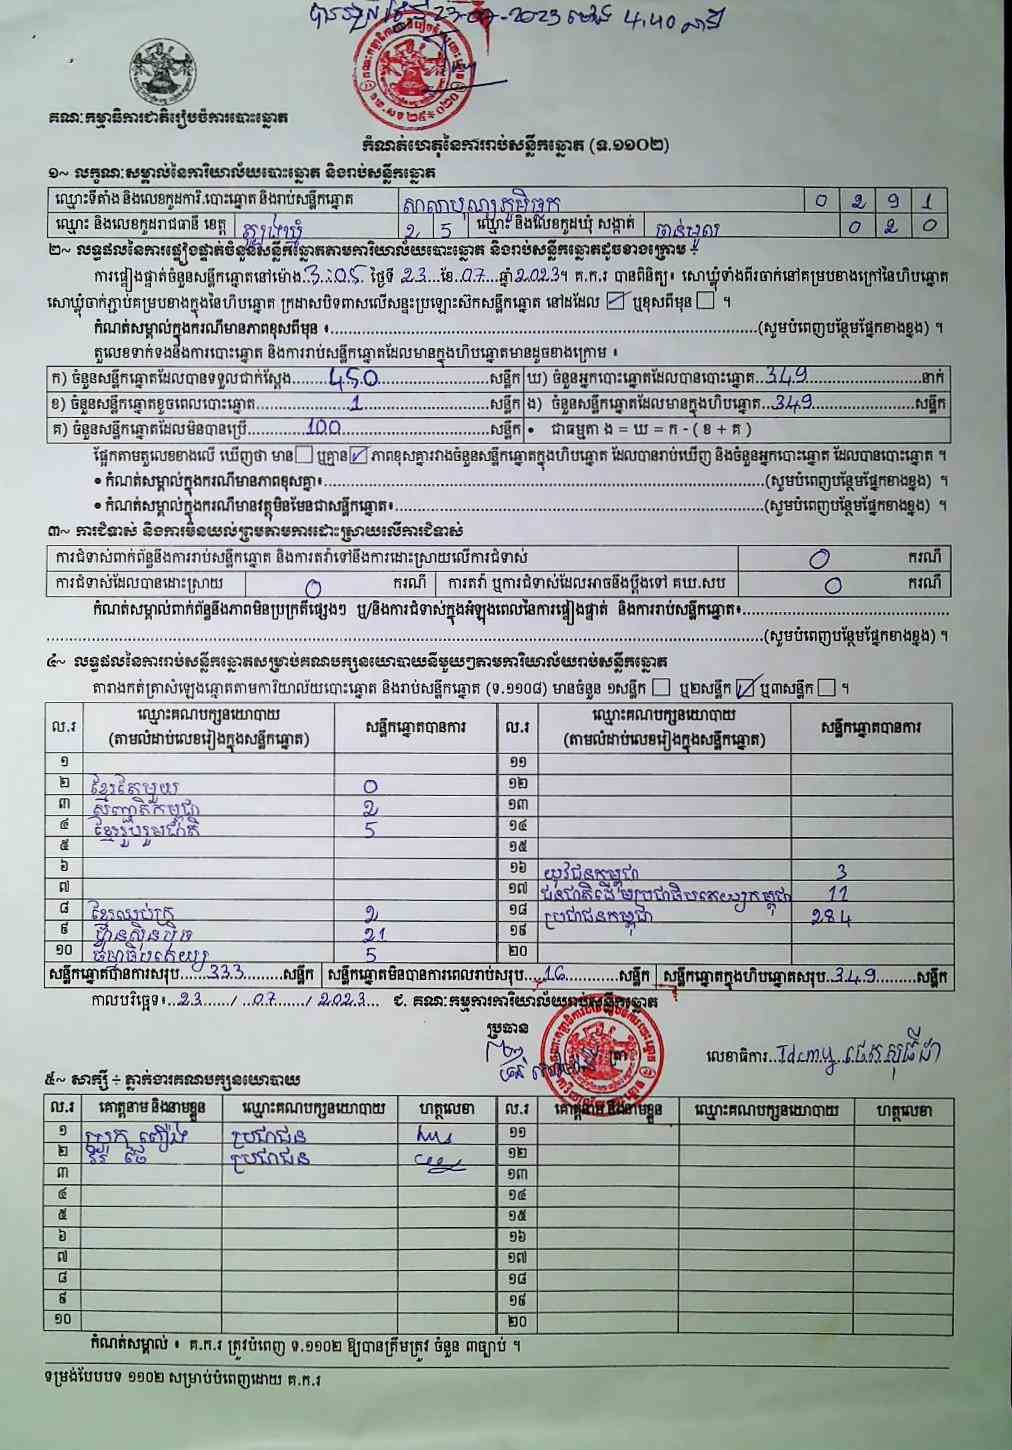 បានទទួល ថ្ងៃទី 23-07-2023 ម៉ោង 4:40 នាទី
គណៈកម្មាធិការជាតិរៀបចំការបោះឆ្នោត
កំណត់ហេតុនៃការរាប់សន្លឹកឆ្នោត (ទ.១១០២)
១~ លក្ខណៈសម្គាល់នៃការិយាល័យបោះឆ្នោត និងរាប់សន្លឹកឆ្នោត
ឈ្មោះទីតាំង និងលេខកូដការិ.បោះឆ្នោត និងរាប់សន្លឹកឆ្នោត សាលាបុណ្យភូមិធ្លក 0 2 9 1
ឈ្មោះ និងលេខកូដរាជធានី ខេត្ត ត្បូងឃ្មុំ 2 5 ឈ្មោះ និងលេខកូដឃុំ សង្កាត់ ចាន់មូល 0 2 0
២~ លទ្ធផលនៃការផ្ទៀងផ្ទាត់ចំនួនសន្លឹកឆ្នោតតាមការិយាល័យបោះឆ្នោត និងរាប់សន្លឹកឆ្នោតដូចខាងក្រោម ÷
ការផ្ទៀងផ្ទាត់ចំនួនសន្លឹកឆ្នោតនៅម៉ោង 3:05 ថ្ងៃទី 23 ខែ 07 ឆ្នាំ 2023។ គ.ក.រ បានពិនិត្យ៖ សោឃ្លុំទាំងពីរចាក់នៅគម្របខាងក្រៅនៃហិបឆ្នោត
សោឃ្លុំចាក់ភ្ជាប់គម្របខាងក្នុងនៃហិបឆ្នោត ក្រដាសបិទពាសលើសន្ទះប្រឡោះស៊កសន្លឹកឆ្នោត នៅដដែល ☑ ឬខុសពីមុន ☐ ។
កំណត់សម្គាល់ក្នុងករណីមានភាពខុសពីមុន ៖ (សូមបំពេញបន្ថែមផ្នែកខាងខ្នង) ។
តួលេខទាក់ទងនឹងការបោះឆ្នោត និងការរាប់សន្លឹកឆ្នោតដែលមានក្នុងហិបឆ្នោតមានដូចខាងក្រោម ៖
ក) ចំនួនសន្លឹកឆ្នោតដែលបានទទួលជាក់ស្ដែង 450 សន្លឹក ឃ) ចំនួនអ្នកបោះឆ្នោតដែលបានបោះឆ្នោត 349 នាក់
ខ) ចំនួនសន្លឹកឆ្នោតខូចពេលបោះឆ្នោត 1 សន្លឹក ង) ចំនួនសន្លឹកឆ្នោតដែលមានក្នុងហិបឆ្នោត 349 សន្លឹក
គ) ចំនួនសន្លឹកឆ្នោតដែលមិនបានប្រើ 100 សន្លឹក • ជាធម្មតា ង = ឃ = ក - ( ខ + គ )
ផ្អែកតាមតួលេខខាងលើ ឃើញថា មាន ☐ ឬគ្មាន ☑ ភាពខុសគ្នារវាងចំនួនសន្លឹកឆ្នោតក្នុងហិបឆ្នោត ដែលបានរាប់ឃើញ និងចំនួនអ្នកបោះឆ្នោត ដែលបានបោះឆ្នោត ។
• កំណត់សម្គាល់ក្នុងករណីមានភាពខុសគ្នា៖ (សូមបំពេញបន្ថែមផ្នែកខាងខ្នង) ។
• កំណត់សម្គាល់ក្នុងករណីមានវត្ថុមិនមែនជាសន្លឹកឆ្នោត៖ (សូមបំពេញបន្ថែមផ្នែកខាងខ្នង) ។
៣~ ការជំទាស់ និងការមិនយល់ព្រមតាមការដោះស្រាយលើការជំទាស់
ការជំទាស់ពាក់ព័ន្ធនឹងការរាប់សន្លឹកឆ្នោត និងការតវ៉ាទៅនឹងការដោះស្រាយលើការជំទាស់ 0 ករណី
ការជំទាស់ដែលបានដោះស្រាយ 0 ករណី ការតវ៉ា ឬការជំទាស់ដែលអាចនឹងប្ដឹងទៅ គឃ.សប 0 ករណី
កំណត់សម្គាល់ពាក់ព័ន្ធនឹងភាពមិនប្រក្រតីផ្សេងៗ ឬ/និងការជំទាស់ក្នុងអំឡុងពេលនៃការផ្ទៀងផ្ទាត់ និងការរាប់សន្លឹកឆ្នោត៖
(សូមបំពេញបន្ថែមផ្នែកខាងខ្នង) ។
៤~ លទ្ធផលនៃការរាប់សន្លឹកឆ្នោតសម្រាប់គណបក្សនយោបាយនីមួយៗតាមការិយាល័យរាប់សន្លឹកឆ្នោត
តារាងកត់ត្រាសំឡេងឆ្នោតតាមការិយាល័យបោះឆ្នោត និងរាប់សន្លឹកឆ្នោត (ទ.១១០៨) មានចំនួន ១សន្លឹក ☐ ឬ២សន្លឹក ☑ ឬ៣សន្លឹក ☐ ។
ល.រ ឈ្មោះគណបក្សនយោបាយ (តាមលំដាប់លេខរៀងក្នុងសន្លឹកឆ្នោត) សន្លឹកឆ្នោតបានការ ល.រ ឈ្មោះគណបក្សនយោបាយ (តាមលំដាប់លេខរៀងក្នុងសន្លឹកឆ្នោត) សន្លឹកឆ្នោតបានការ
១ ១១
២ ខ្មែរតែមួយ 0 ១២
៣ សញ្ជាតិកម្ពុជា 2 ១៣
៤ ខ្មែររួបរួមជាតិ 5 ១៤
៥ ១៥
៦ ១៦ យុវជនកម្ពុជា 3
៧ ១៧ ជនជាតិដើមប្រជាធិបតេយ្យកម្ពុជា 11
៨ ខ្មែរឈប់ក្រ 2 ១៨ ប្រជាជនកម្ពុជា 284
៩ ហ៊្វុនស៊ិនប៉ិច 21 ១៩
១០ ធម្មាធិបតេយ្យ 5 ២០
សន្លឹកឆ្នោតបានការសរុប 333 សន្លឹក សន្លឹកឆ្នោតមិនបានការពេលរាប់សរុប 16 សន្លឹក សន្លឹកឆ្នោតក្នុងហិបឆ្នោតសរុប 349 សន្លឹក
កាលបរិច្ឆេទ៖ 23 / 07 / 2023 ជ. គណៈកម្មការការិយាល័យរាប់សន្លឹកឆ្នោត
ប្រធាន
លេខាធិការ
៥~ សាក្សី ÷ ភ្នាក់ងារគណបក្សនយោបាយ
ល.រ គោត្តនាម និងនាមខ្លួន ឈ្មោះគណបក្សនយោបាយ ហត្ថលេខា ល.រ គោត្តនាម និងនាមខ្លួន ឈ្មោះគណបក្សនយោបាយ ហត្ថលេខា
១ ប្រជាជន ១១
២ ប្រជាជន ១២
៣ ១៣
៤ ១៤
៥ ១៥
៦ ១៦
៧ ១៧
៨ ១៨
៩ ១៩
១០ ២០
កំណត់សម្គាល់ ៖ គ.ក.រ ត្រូវបំពេញ ទ.១១០២ ឱ្យបានត្រឹមត្រូវ ចំនួន ៣ច្បាប់ ។
ទម្រង់បែបបទ ១១០២ សម្រាប់បំពេញដោយ គ.ក.រ